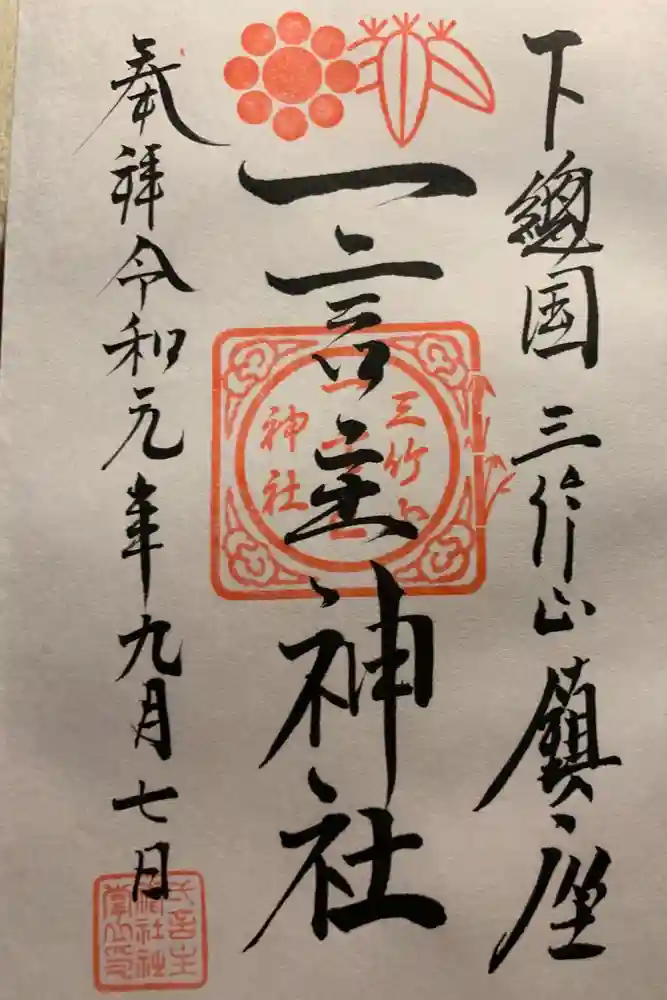 下總国 三竹山鎮座
一言主神社
奉拝 令和元年九月七日
三竹山
一言主
神社